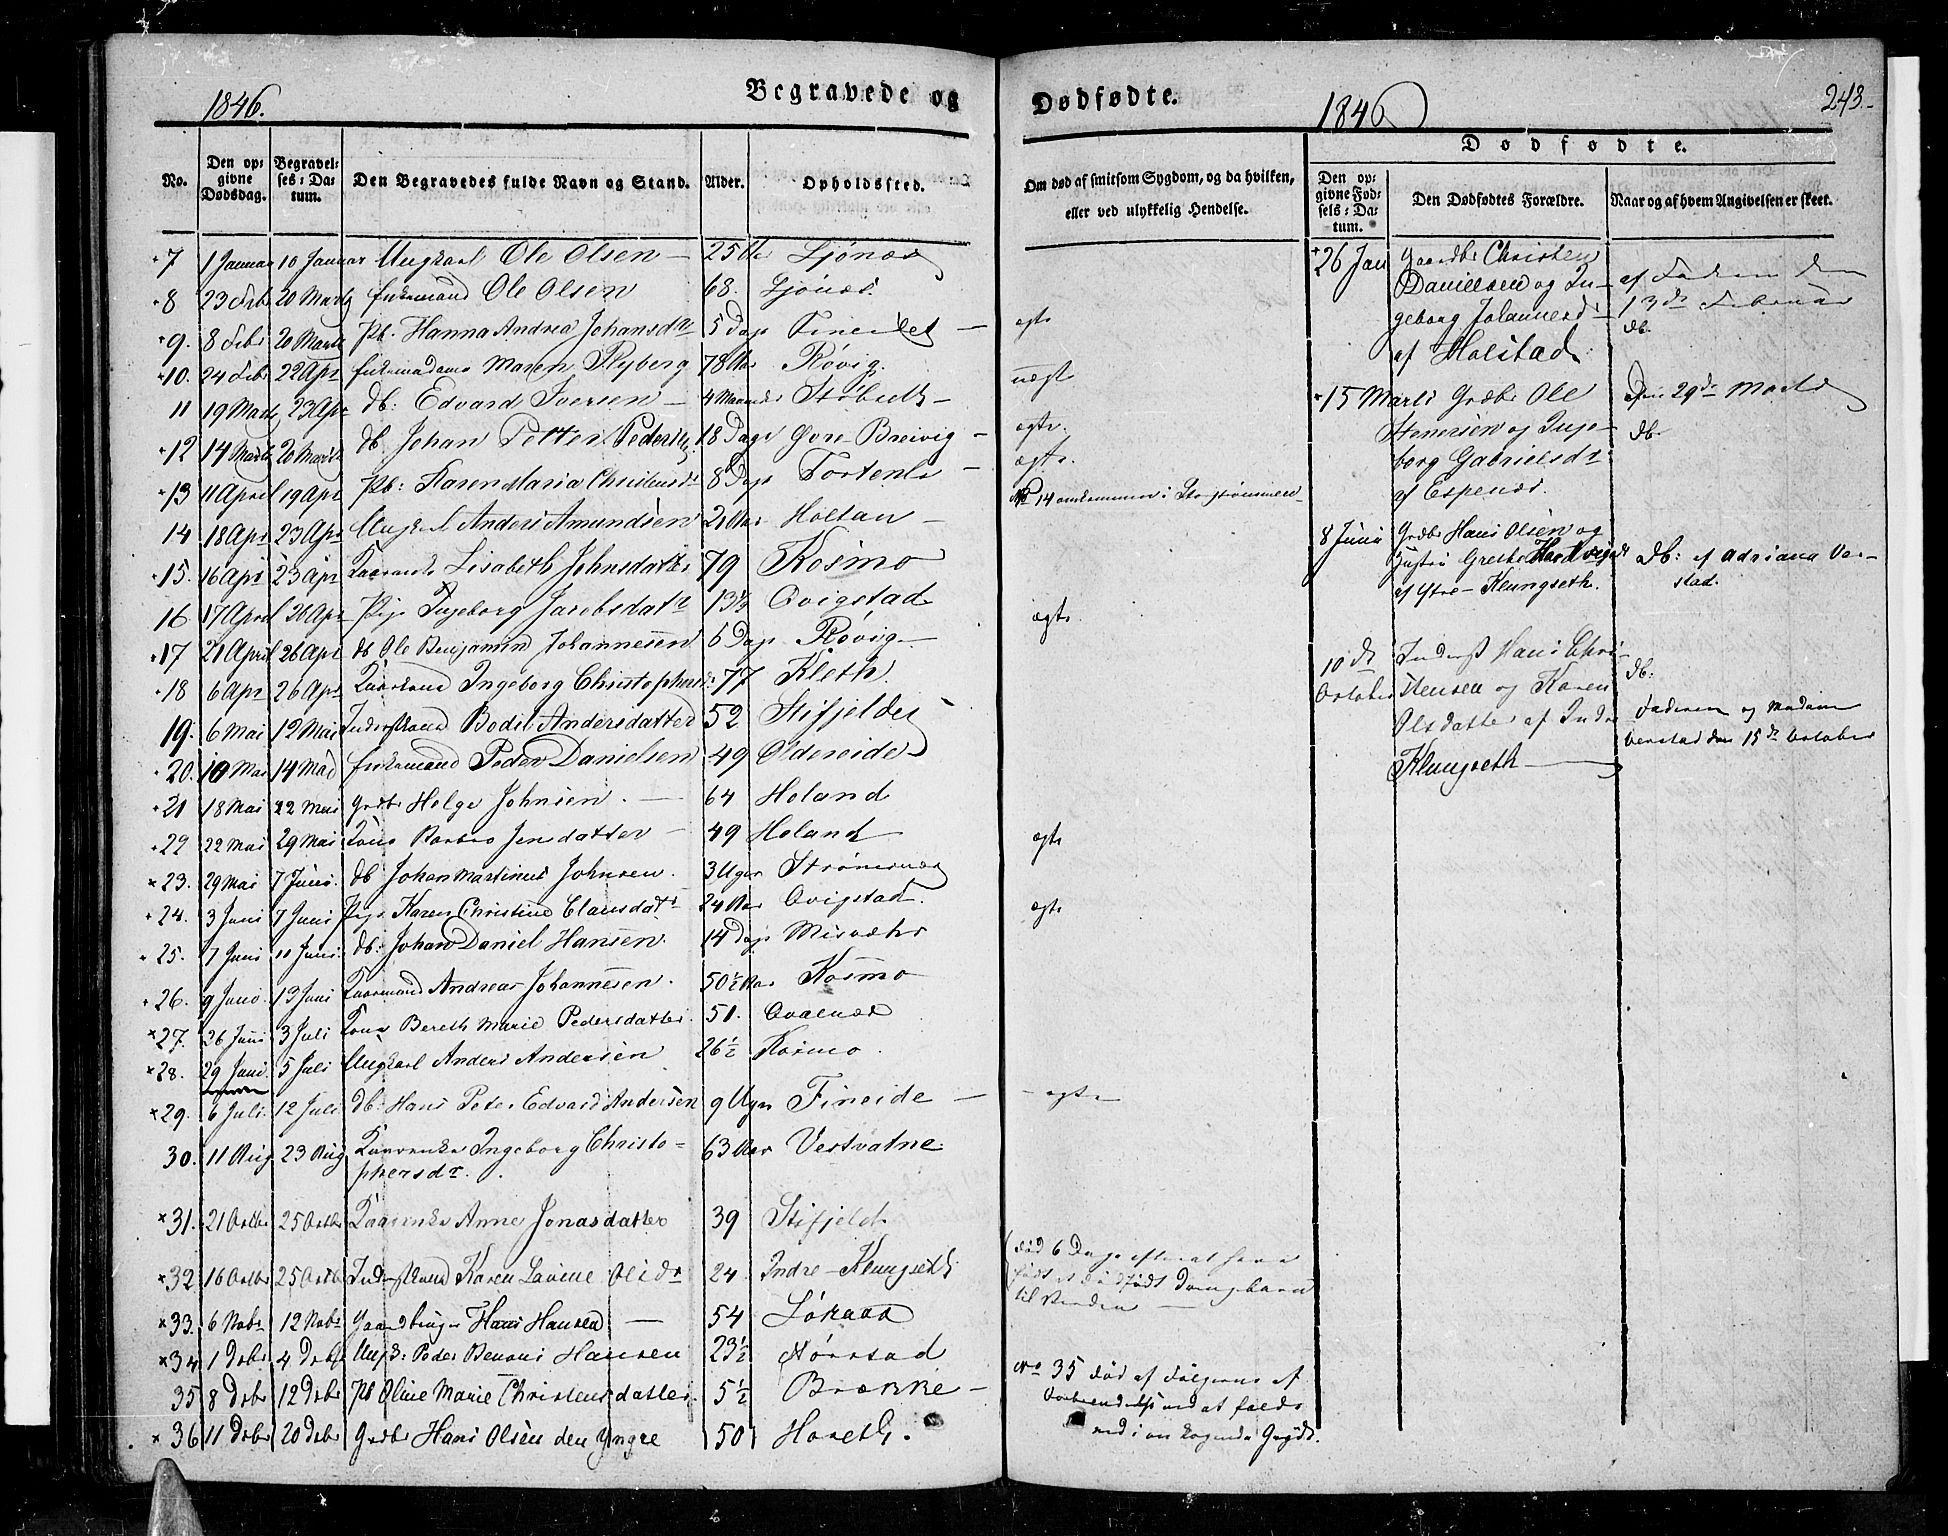 1846.
Begravede og
Dødfødte.
1846
243.
No.
Den op-
givne
Dødsdag.
Begravel-
ses-Da-
tum.
Den Begravedes fulde Navn og Stand.
Alder.
Opholdssted.
Om død af smitsom Sygdom, og da hvilken,
eller ved ulykkelig Hendelse.
Dødfødte.
Den op-
givne Fød-
sels-Da-
tum.
Den Dødfødtes Forældre.
Naar og af hvem Angivelsen er skeet.
7 1 Januar 10 Januar Ungkarl Ole Olsen 25 Aar Ljønæs
8 23 Febr 20 Marts Ole Olsen 68. Ljønæs.
9. 8 Febr 20 Marts Pb. Hanna Andrea Johansdr 5 Dage Fineidet
10. 24 Febr 22 Apr Maren Flyberg 78 Aar Røvig
11 19 Marts 23 Apr db: Edvard Iversen 4 Maaneder
12 14 Marts 20 Marts db Johan Petter Peders 18 Dage Øvre Breivig
13 11 April 19 Apr Pb: Karen Maria Christensdr 8 Dage
14 18 Apr 23 Apr Ungkarl Anders Amundsen Aar Holtan
15. 16 Apr 23 Apr Lisabeth Johnsdatter 79 Kosmo
16 17 April 26 Apr Pige Ingeborg Jacobsdatr 13½ Qvigstad
17 21 April 26 Apr db Ole Benjamin Johannesen 6 Dage Røvig
18 6 Apr 26 Apr Ingeborg Christophersdr 77 Kleth.
19. 6 Mai 12 Mai Bodil Andersdatter 52 Stifjeldet
20. 10 Mai 14 Mai Peder Danielsen 49 Oldereide
21 18 Mai 22 Mai Grdbr Helge Johnsen. 64 Holand
22 22 Mai 29 Mai Kone Barbro Jensdatter 49 Holand
23. 29 Mai 7 Juni. db Johan Martinus Johnsen. 3 Uger Strømsnæs
24. 3 Juni 7 Juni Pige Karen Christine Clausdatr 24 Aar Qvigstad.
25. 7 Juni 11 Juni. db: Johan Daniel Hansen. 14 Dage Misvæhr
26. 9 Juni. 13 Juni Andreas Johannesen. 50½ Aar Kosmo
27. 26 Juni 3 Juli Kone Bereth Marie Pedersdatter 51. Qvalnæs
28. 29 Juni. 5 Juli Ungkarl Anders Andersen 26½ Kosmo.
29. 6 Juli. 12 Juli db: Hans Peter Edvard Andersen 9 Uger Fineide
30. 11 Aug 23 Aug Ingeborg Christo-
phersdr. 63 Aar Vestvatne
31. 21 Octbr 25 Octbr Anne Jonasdatter 39 Stifjeld
32. 16 Octbr 25 Octb Karen Lavine Olsdr 24. Indre-Klungseth
33. 6 Nobr 12 Nobr Gaardbruger Hans Hansen 54
34 1 Debr 4 Debr Ungk: Peder Benoni Hansen 23½
35 8 Debr 12 Debr Pb Oline Marie Christensdatter 5½ Brække
36 11 Debr 20 Debr Grdbr Hans Olsen den Yngre 50
ægte
uægte
ægte.
ægte.
No 14 omkommen i Storstrømmen
ægte.
ægte
ægte
ægte
død 6 Dage efterat have
født et dødfødt Drengebarn
til Verden
No 35 død af Følgerne af
ved at falde
ned i en kogende Gryde.
26 Jan
Gaardbr Christen
Danielsen og In-
geborg Johannesd
af Holstad.
af Faderen den
13de Februar
db.
15 Marts Grdbr Ole
Stenersen og Inge-
borg Gabrielsdr
af Espenæs.
Den 29de Marts
db.
8 Juni
Grdbr Hans Olsen og
Hustru Grethe Hartvigsdr
af Ytre-Klungseth.
db: af Adriana Ver-
stad.
10de
October
Inderst Hans Chri-
stensen og Karen
Olsdatter af Indre
Klungseth
db:
Faderen og Madam
Verstad den 15de October